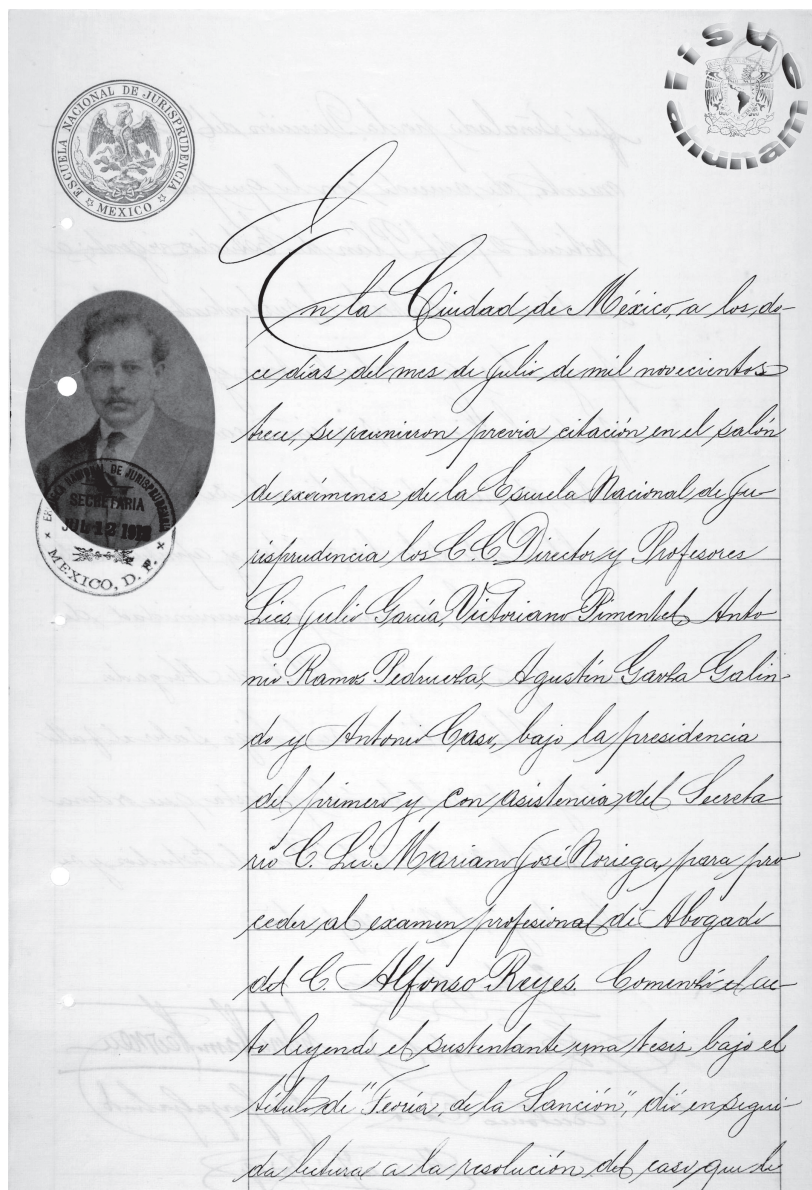 ESCUELA NACIONAL DE JURISPRUDENCIA
MEXICO
iisue
ahunam
En la Ciudad de México, a los do-
ce días del mes de Julio de mil novecientos
trece, se reunieron previa citación en el salón
de exámenes de la Escuela Nacional de Ju-
risprudencia los C.C. Director y Profesores
Lics. Julio García, Victoriano Pimentel, Anto
nio Ramos Pedrueza, Agustín Garza Galin-
do y Antonio Caso, bajo la presidencia
del primero y con asistencia del Secreta
rio C. Lic. Mariano José Noriega, para pro
ceder al examen profesional de Abogado
del C. Alfonso Reyes. Comenzó el ac-
to leyendo el sustentante una tesis bajo el
título de "Teoría de la Sanción", dió en segui-
da lectura a la resolución del caso que le
NACIONAL DE JURISPRUDENCIA
SECRETARIA
JUL 12
MEXICO, D. F.